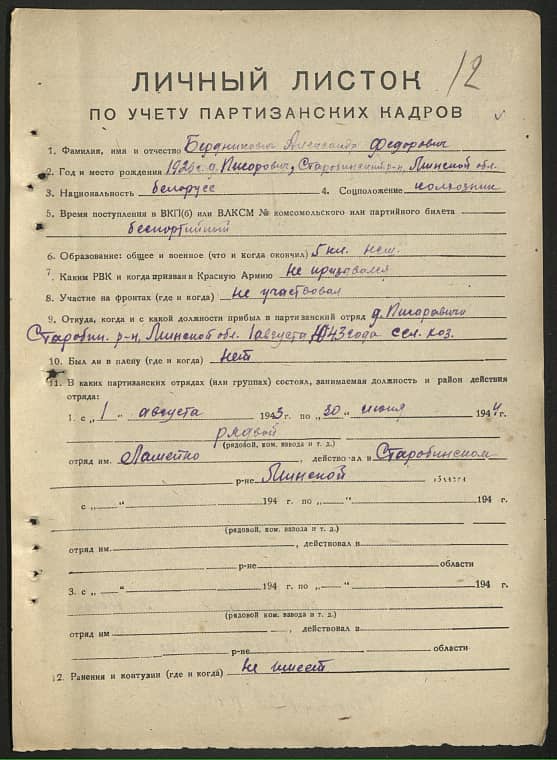 12
ЛИЧНЫЙ ЛИСТОК
ПО УЧЕТУ ПАРТИЗАНСКИХ КАДРОВ
1. Фамилия, имя и отчество Александр Федорович
2. Год и место рождения Старобинский р-н, Минской обл.
3. Национальность белорусс 4. Соцположение колхозник
5. Время поступления в ВКП(б) или ВЛКСМ № комсомольского или партийного билета
беспортийный
6. Образование: общее и военное (что и когда окончил) 5 кл. нет.
7. Каким РВК и когда призван в Красную Армию не призывался
8. Участие на фронтах (где и когда) не участвовал
9. Откуда, когда и с какой должности прибыл в партизанский отряд д.
Старобин. р-н, Минской обл. 1 августа 1943 года сел. хоз.
10. Был ли в плену (где и когда) нет
11. В каких партизанских отрядах (или группах) состоял, занимаемая должность и район действия
отряда:
1. с „1“ августа 1943 г. по „30“ июня 1944 г.
рядовой
(рядовой, ком. взвода и т. д.)
отряд им. , действовал в Старобинском
р-не Минской области
с „ “ 194 г. по „ “ 194 г.
(рядовой, ком. взвода и т. д.)
отряд им. , действовал в
р-не области
3. с „ “ 194 г. по „ “ 194 г.
(рядовой ком. взвода и т. д.)
отряд им , действовал в
р-не области
12. Ранения и контузии (где и когда) не имеет